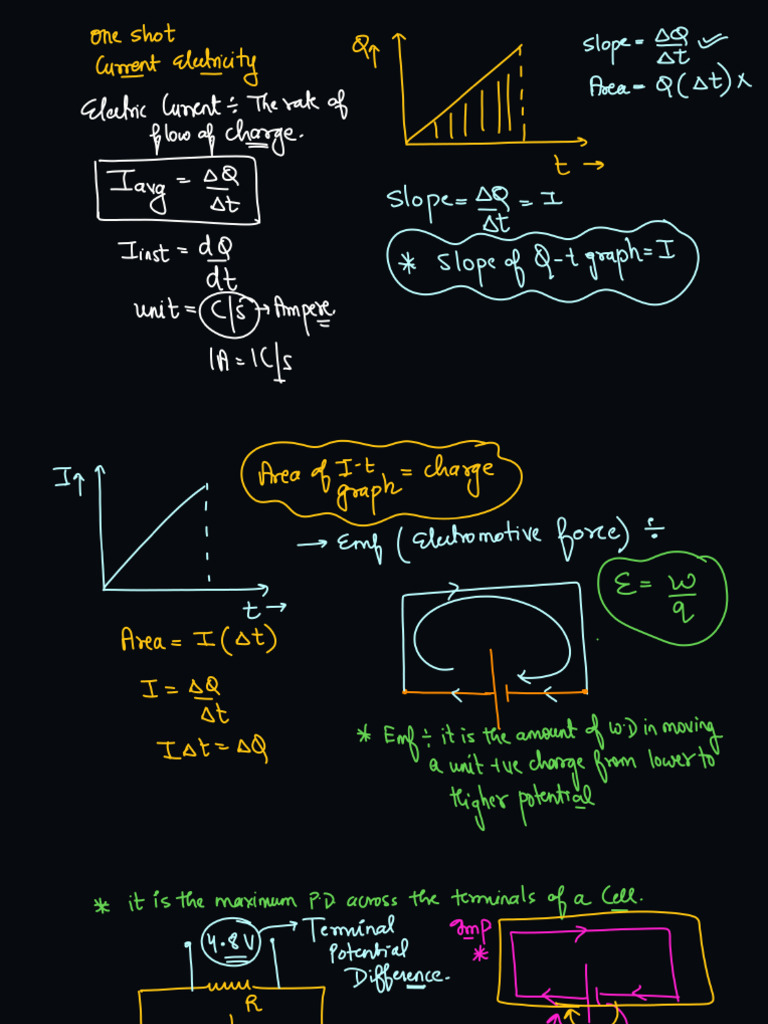 One shot
Current Electricity
Electric Current ÷ The rate of
flow of charge.
I avg = ΔQ/Δt
I inst = dQ/dt
unit = C/s → Ampere
1A = 1C/s
Q↑
t →
Slope = ΔQ/Δt ✓
Area = Q(Δt) x
Slope = ΔQ/Δt = I
* Slope of Q-t graph = I
I↑
t →
Area = I(Δt)
I = ΔQ/Δt
IΔt = ΔQ
Area of I-t graph = charge
→ Emf (Electromotive force) ÷
ε = w/q
* Emf ÷ it is the amount of W.D in moving
a unit +ve charge from lower to
Higher potential
* it is the maximum P.D across the terminals of a Cell.
4.8V → Terminal
Potential
Difference.
R
Imp
*